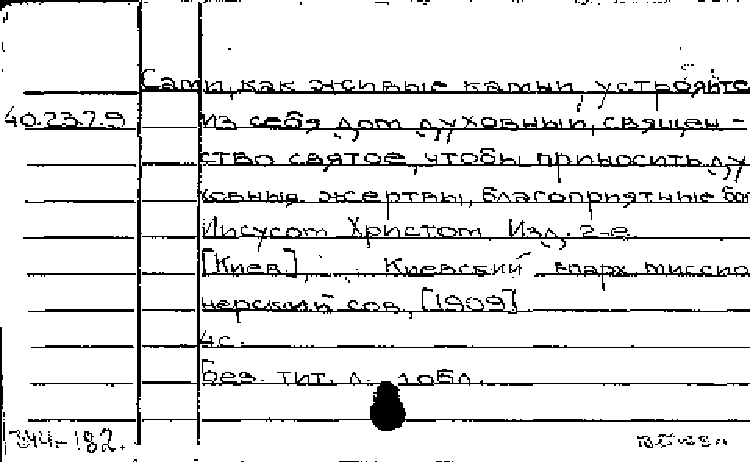 Сами, как живые камни, устрояйте
40.23.7.9 из себя дом духовный, священ-
ство святое, чтобы приносить ду
ховные жертвы, благоприятные бог
Иисусом Христом. Изд. 2-е.
[Киев], Киевский епарх. миссио
нерский сов., [1909]
4с.
Без. тит. л. и обл.
-182.